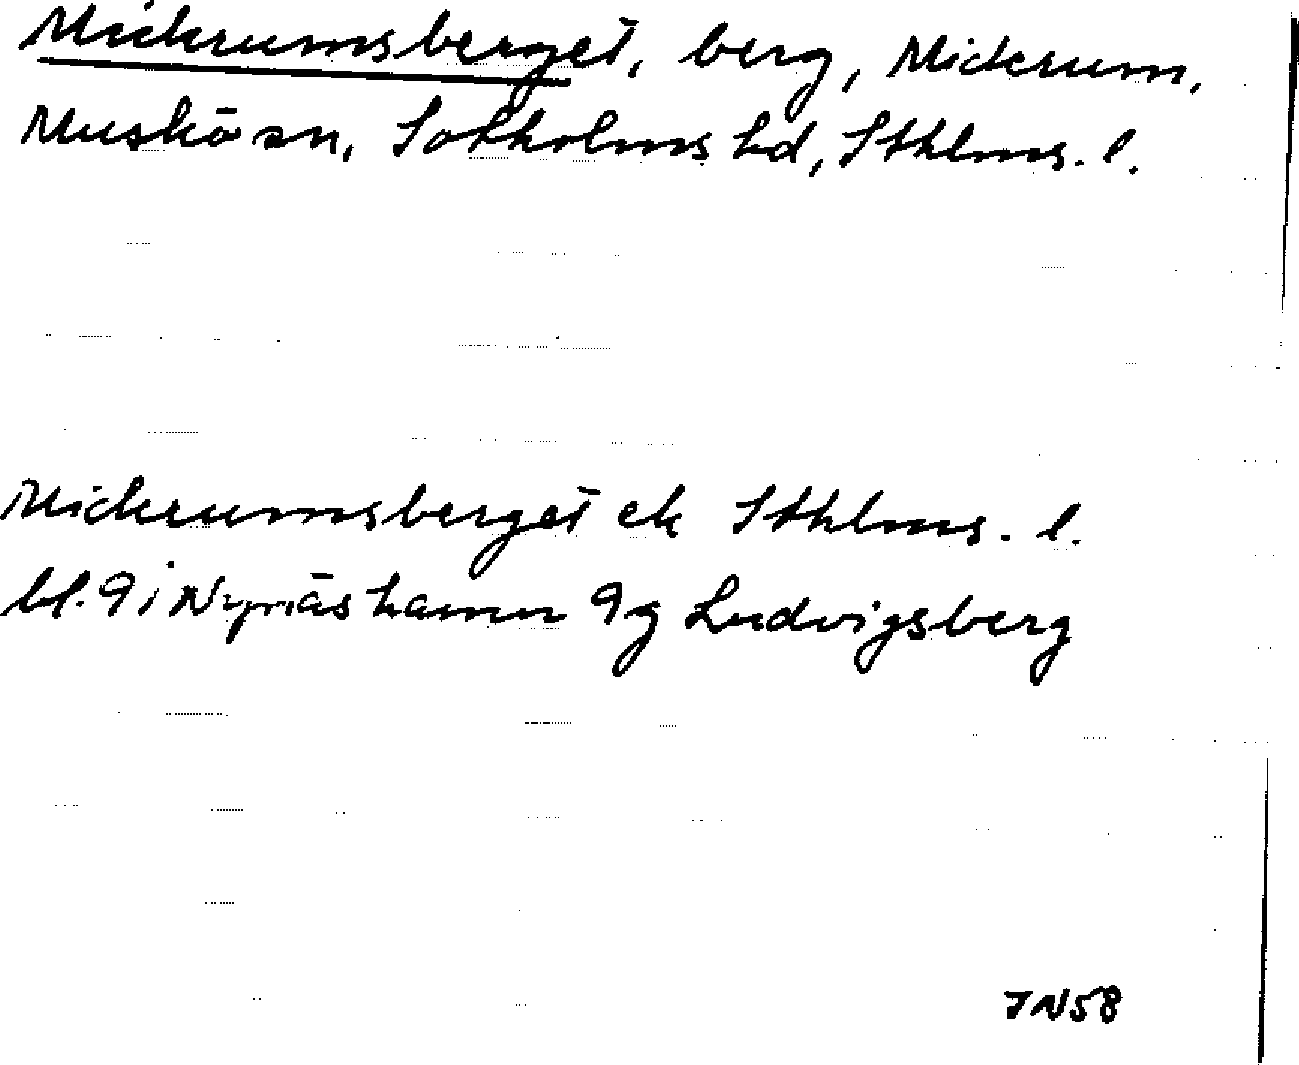 Mickrumsberget, berg, Mickrum,
Muskö sn, Sotholms hd, Sthlms. l.
Mickrumsberget ek Sthlms. l.
bl. 9 i Nynäshamn 9g Ludvigsberg
JN58